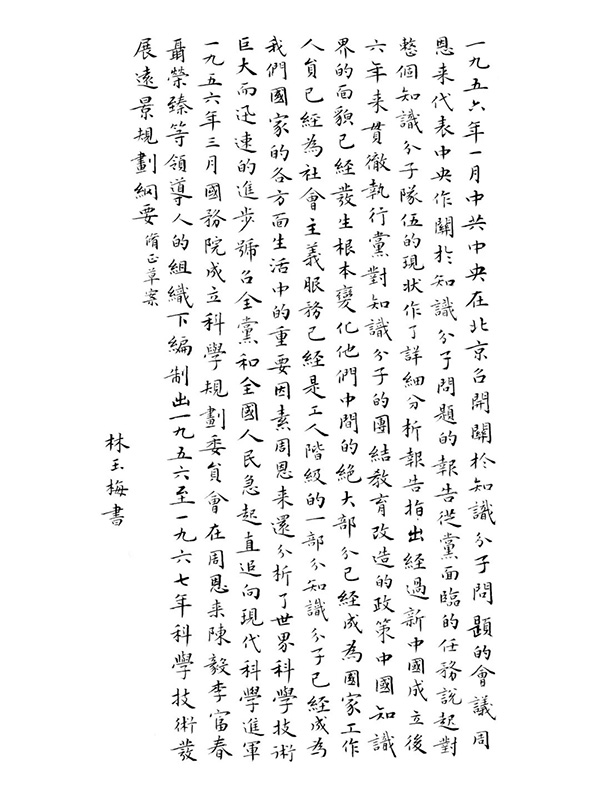 一九五六年一月中共中央在北京召開關於知識分子問題的會議周
恩来代表中央作關於知識分子問題的報告從黨面臨的任務說起對
整個知識分子隊伍的現状作了詳細分析報告指出經過新中國成立後
六年来貫徹執行黨對知識分子的團結教育改造的政策中國知識
界的面貌已經發生根本變化他們中間的絶大部分已經成為國家工作
人員已經為社會主義服務已經是工人階級的一部分知識分子已經成為
我們國家的各方面生活中的重要因素周恩来還分析了世界科學技術
巨大而迅速的進步號召全黨和全國人民急起直追向現代科學進軍
一九五六年三月國務院成立科學規劃委員會在周恩来陳毅李富春
聶榮臻等領導人的組織下編制出一九五六至一九六七年科學技術發
展遠景規劃綱要脩正草案
林玉梅書